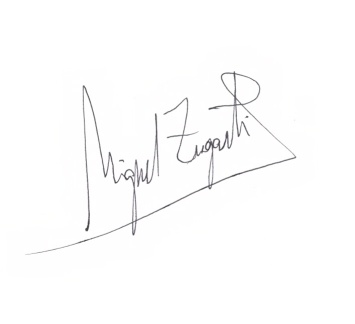 Miguel Zugasti